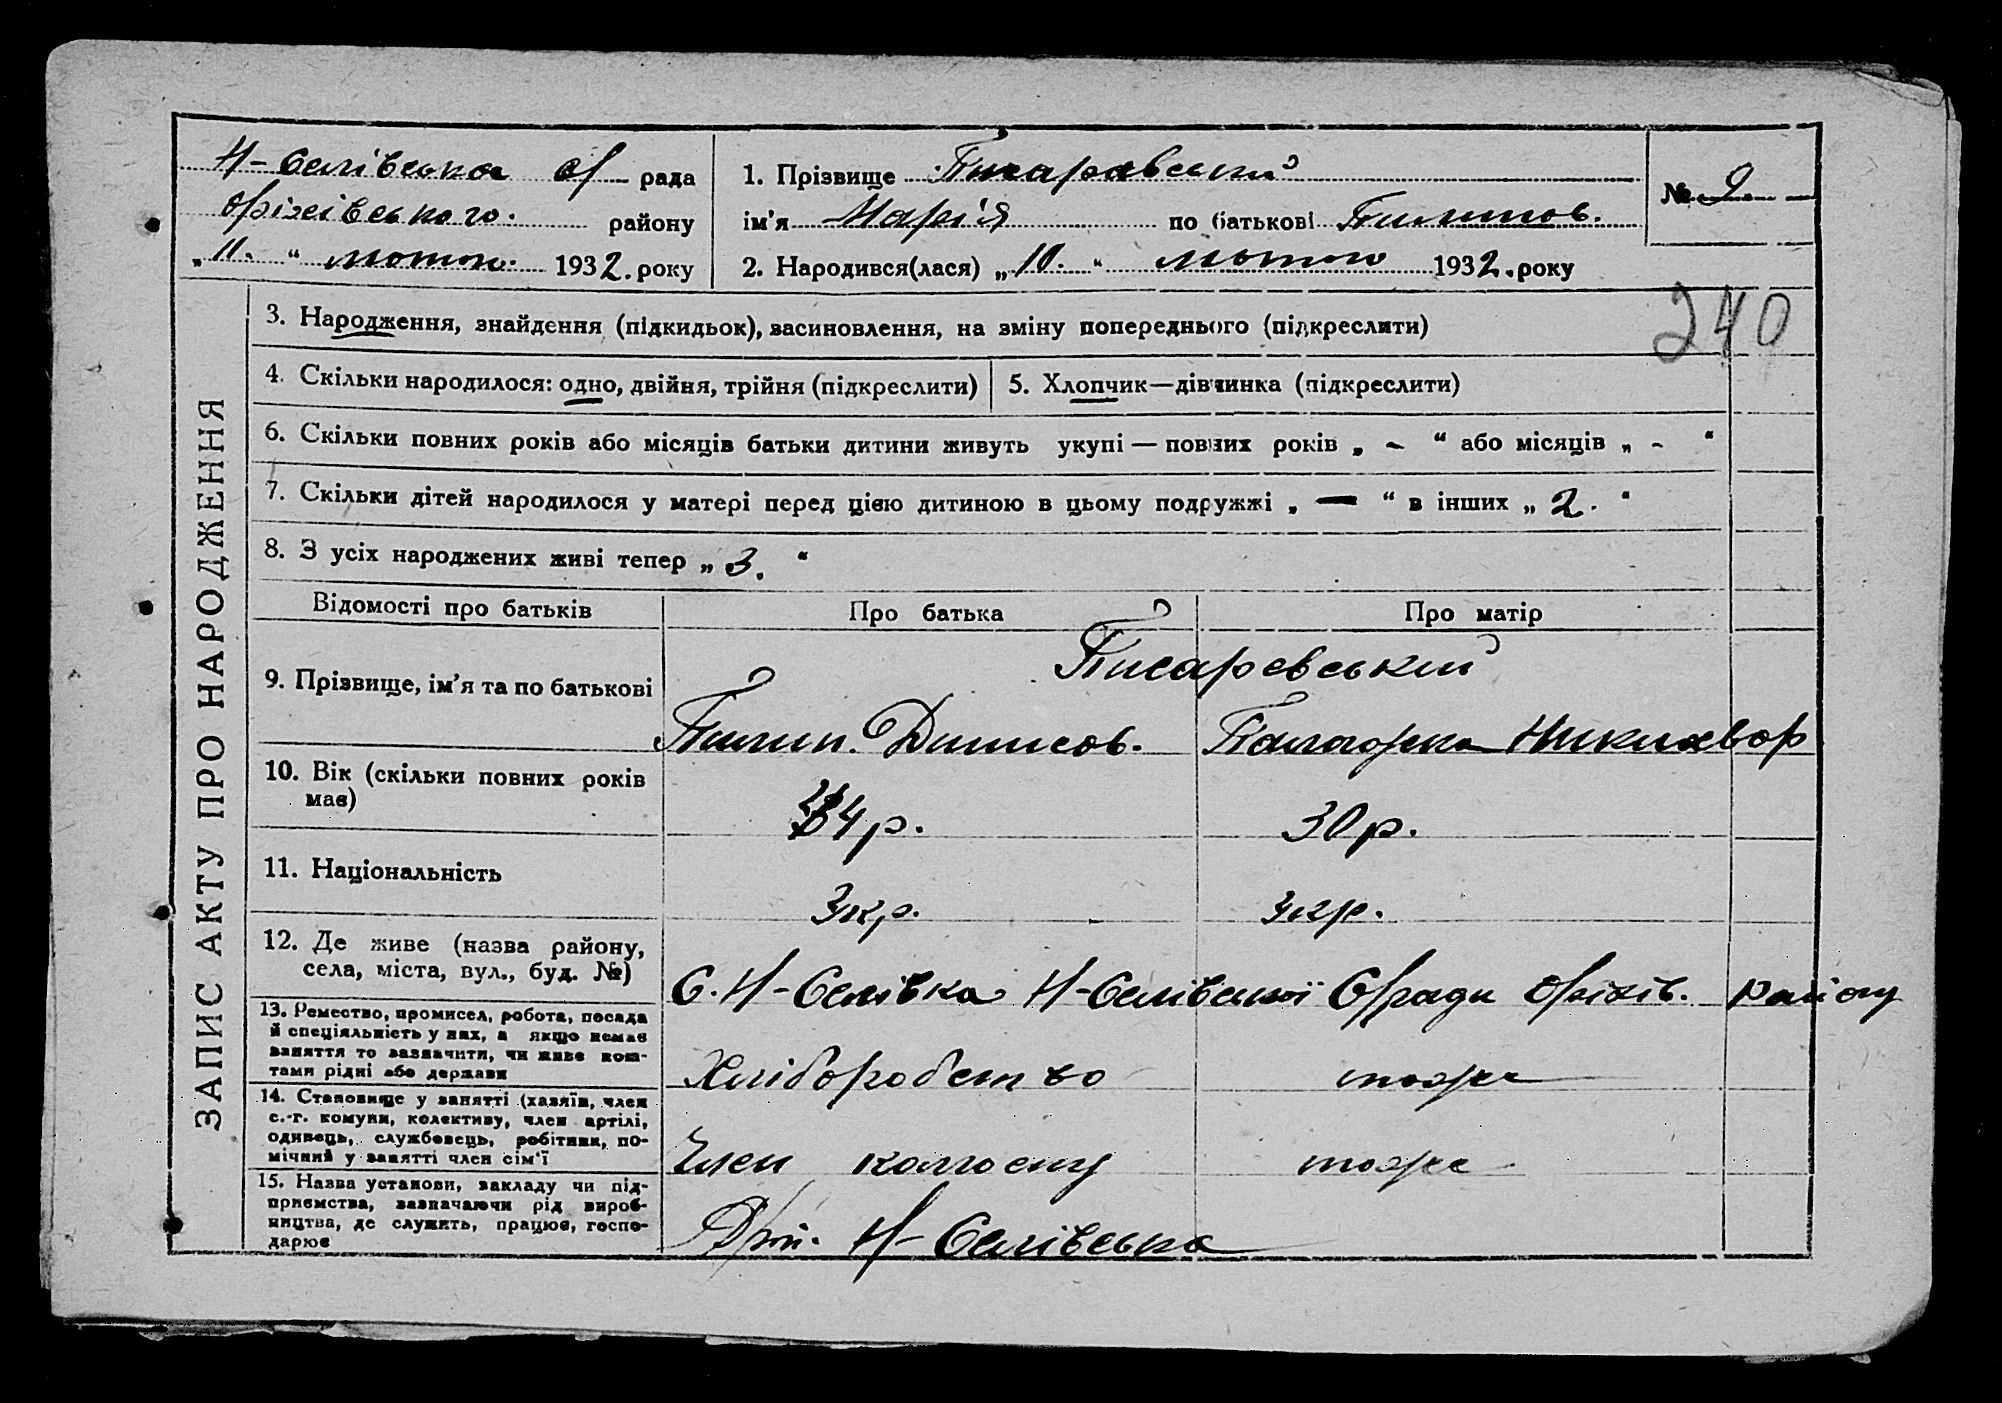 Н-Селівська с/ рада
Оріхівського. району
„ 11. “ лютого 1932. року
1. Прізвище Писаревський
ім'я Марія по батькові Пилипов.
2. Народився(лася) „ 10. “ лютого 1932. року
№ 9
240
ЗАПИС АКТУ ПРО НАРОДЖЕННЯ
3. Народження, знайдення (підкидьок), васиновлення, на зміну попереднього (підкреслити)
4. Скільки народилося: одно, двійня, трійня (підкреслити)
5. Хлопчик—дівчинка (підкреслити)
6. Скільки повних років або місяців батьки дитини живуть укупі — повних років „ - “ або місяців „ - “
7. Скільки дітей народилося у матері перед цією дитиною в цьому подружжі „ — “ в інших „ 2. “
8. З усіх народжених живі тепер „ 3. “
Відомості про батьків
Про батька
Про матір
9. Прізвище, ім'я та по батькові
Писаревський
Пилип. Динисов.
Палажка Никилавор
10. Вік (скільки повних років
має)
34р.
30р.
11. Національність
Укр.
Укр.
12. Де живе (назва району,
села, міста, вул., буд. №)
С. Н-Селівка Н-Селівської С/ради Оріхів. району
13. Ремество, промисел, робота, посада
й спеціяльність у них, а якщо немає
заняття то зазначити, чи живе кош-
тами рідні або держави
Хліборобство
тоже
14. Становище у занятті (хазяїн, член
с.-г. комуни, колективу, член артілі,
одинець, службовець, робітник, по-
мічний у занятті член сім'ї
Член колгоспу
тоже
15. Назва установи, закладу чи під-
приємства, зазначаючи рід вироб-
ництва, де служить, працює, госпо-
дарює
Н-Селівська